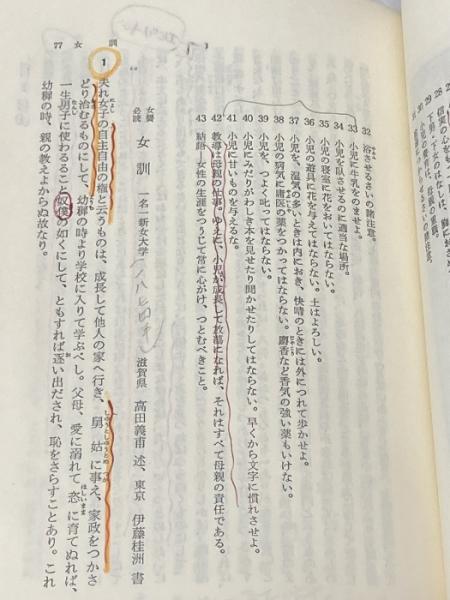 77 女 訓
32 浴させるさいの諸注意。
33 小児に牛乳をのませよ。
34 小児を臥させるのに適当な場所。
35 小児の寝室に花をおいてはならない。
36 小児の遊具に花を与えてはならない。土はよろしい。
37 小児を、湿気の多いときは内におき、快晴のときには外につれて歩かせよ。
38 小児の病気に庸医の薬をつかってはならない。麝香など香気の強い薬もいけない。
39 小児を、つよく叱ってはならない。
40 小児にみだりがわしき本を見せたり聞かせたりしてはならない。早くから文字に慣れさせよ。
41 小児に甘いものを与えるな。
42 教導は母親の仕事。ゆえに、小児が成長して放蕩になれば、それはすべて母親の責任である。
43 結語・女性の生涯をつうじて常に心がけ、つとむべきこと。
女黌必読 女訓 一名 新女大学 (一八七四年) 滋賀県 高田義甫 述、東京 伊藤桂洲 書
1
夫れ女子の自主自由の権と云うものは、成長して他人の家へ行き、舅姑に事え、家政をつかさ
どり治むるものにして、幼稚の時より学校に入りて学ぶべし。父母、愛に溺れて恣に育てぬれば、
一生男子に使わるること奴僕の如くにして、ともすれば逐い出だされ、恥をさらすことあり。これ
幼稚の時、親の教えよからぬ故なり。